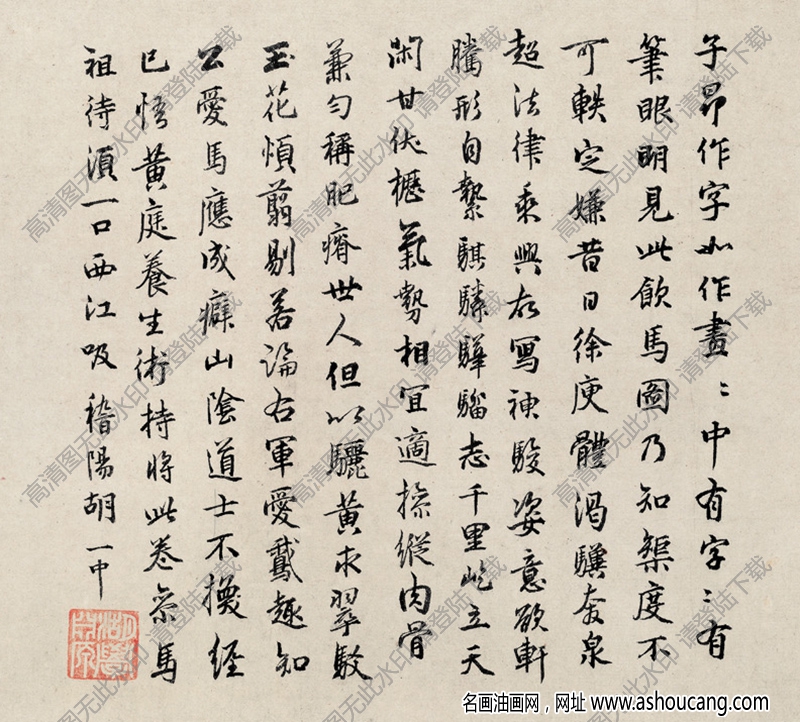 子昂作字如作畫畫中有字字有
筆眼明見此飲馬圖乃知榘度不
可軼定嫌昔日徐庾體渴驥奔泉
超法律乘興寫神駿姿意欲軒
騰形自縶騏驎驊騮志千里屹立天
閑甘伏櫪氣勢相宜適操縱肉骨
兼勻稱肥瘠世人但以驪黃求翠駮
玉花煩翦剔若論右軍愛鵞趣知
公愛馬應成癖山陰道士不換經
已悟黃庭養生術持將此卷馬
祖待須一口西江吸稽陽胡一中
高清图无此水印 请登陆下载
名画油画网，网址 www.ashoucang.com